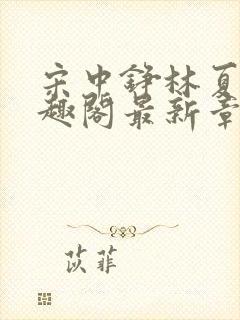 宋中铮林夏
趣阁最新章
苡菲